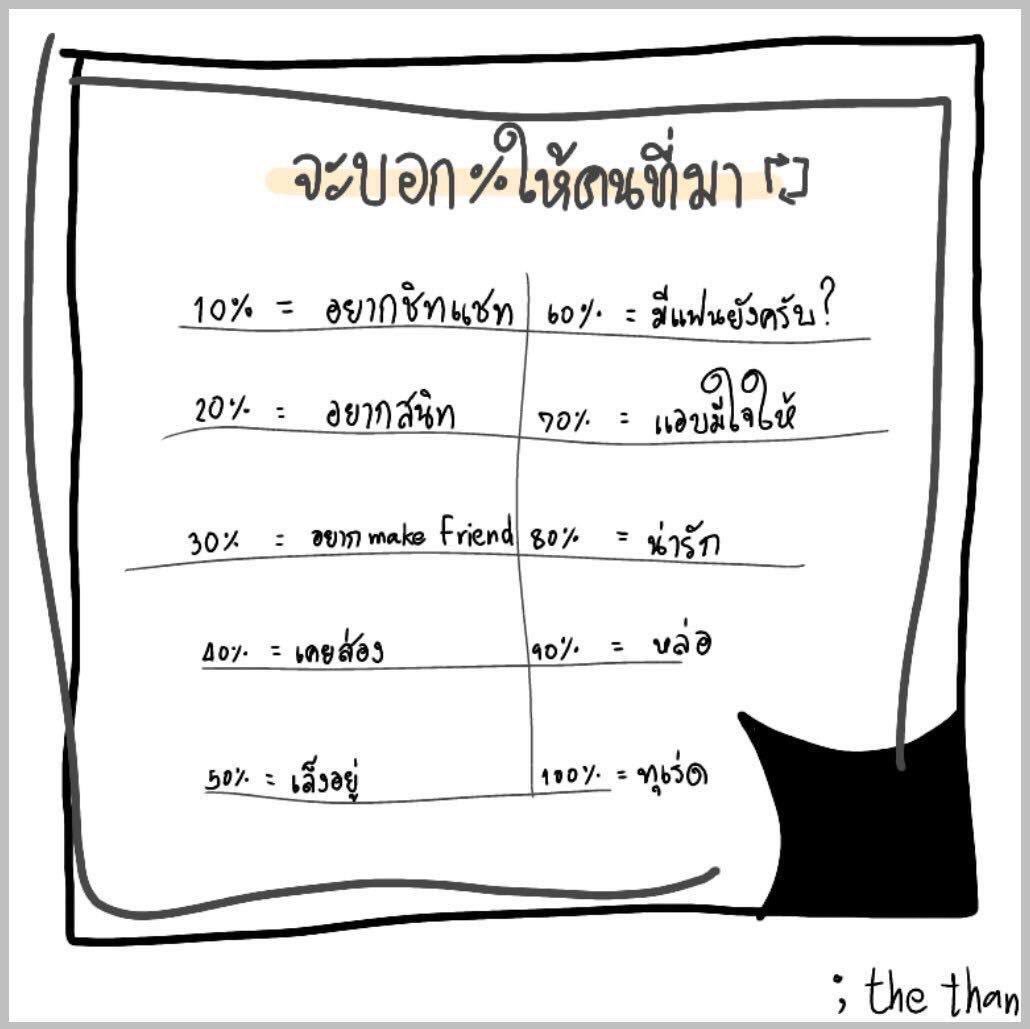 จะบอก%ให้คนที่มา
10% = อยากชิทแชท
60% = มีแฟนยังครับ?
20% = อยากสนิท
70% = แอบมีใจให้
30% = อยาก make friend
80% = น่ารัก
40% = เคยส่อง
90% = หล่อ
50% = เล็งอยู่
100% = ทุเร่ด
; the than